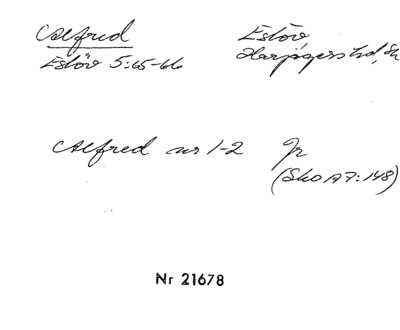 Alfred
Eslöv,
Eslöv 5:65-66
Harjagers hd, Sk
Alfred nr 1-2 Jr
(Sko A7:148)
Nr 21678